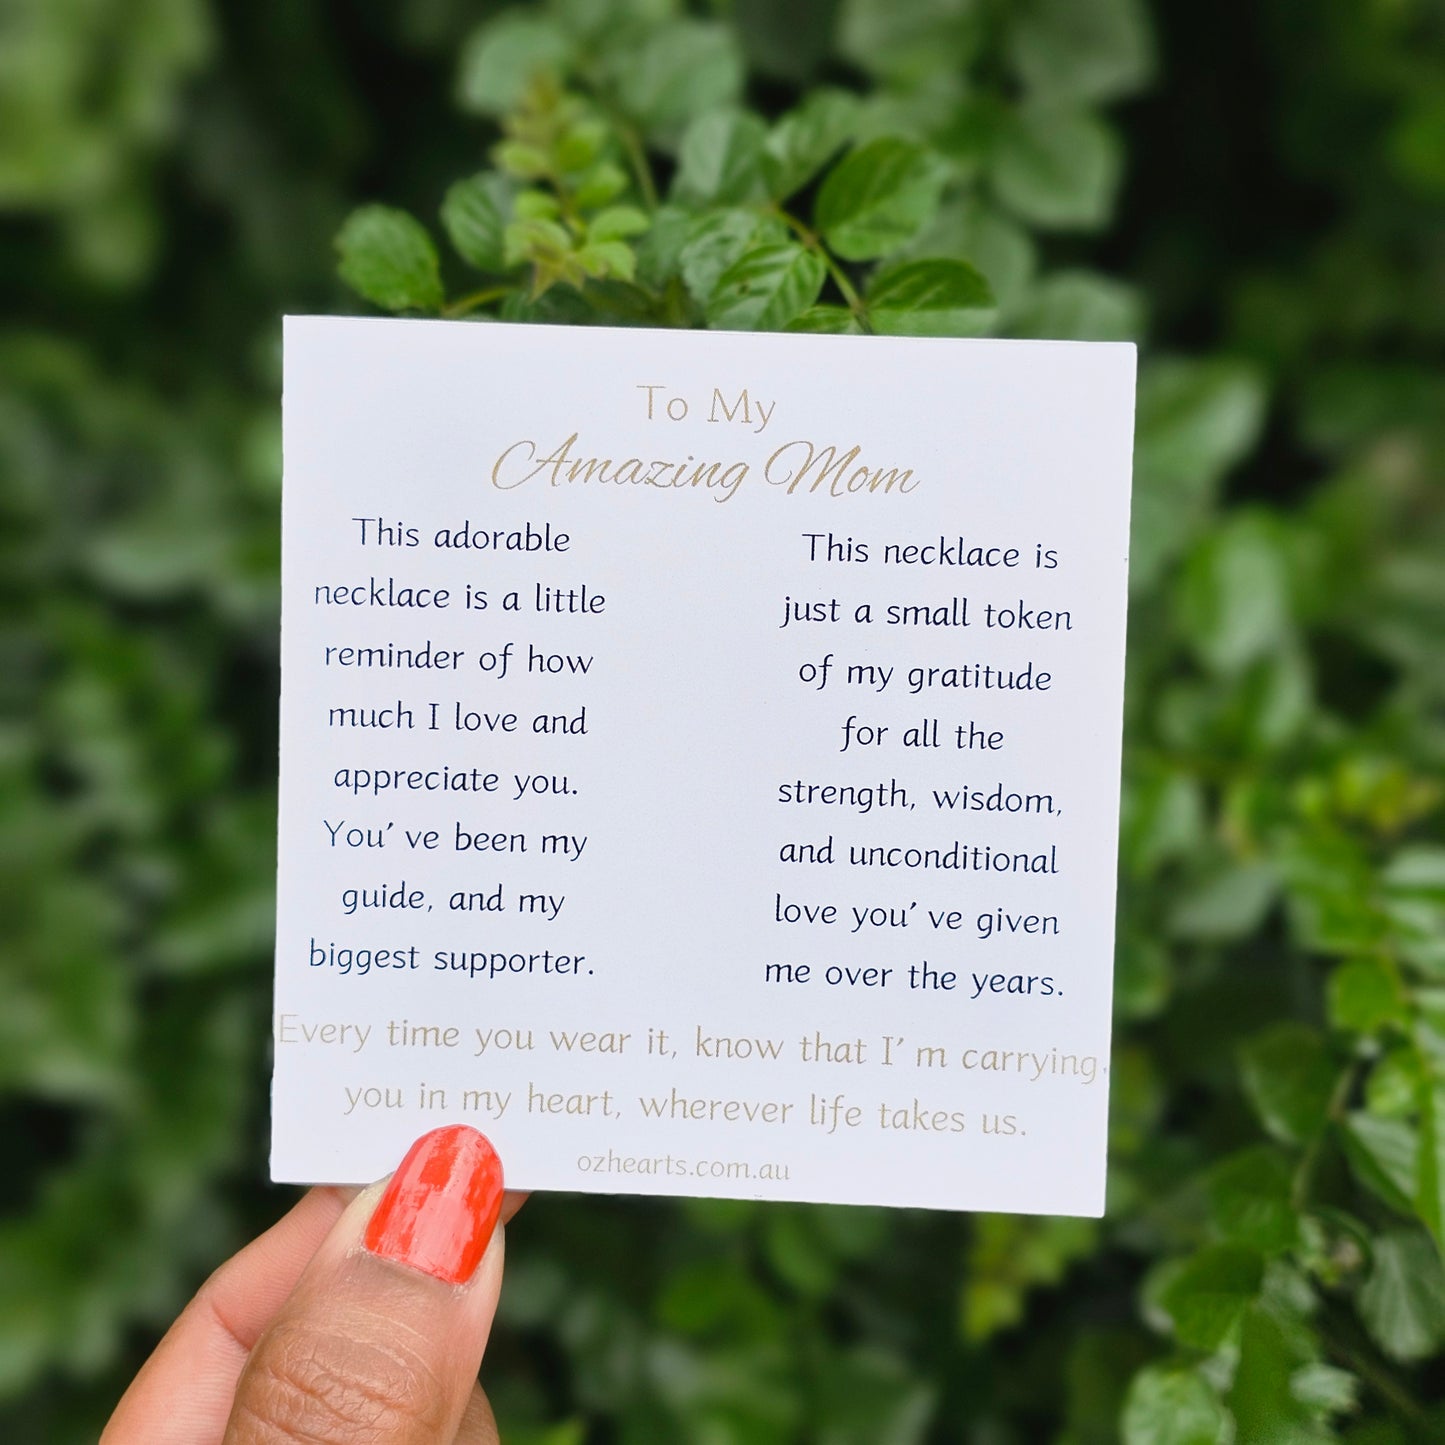 To My
Amazing Mom
This adorable
necklace is a little
reminder of how
much I love and
appreciate you.
You've been my
guide, and my
biggest supporter.
This necklace is
just a small token
of my gratitude
for all the
strength, wisdom,
and unconditional
love you've given
me over the years.
Every time you wear it, know that I'm carrying,
you in my heart, wherever life takes us.
ozhearts.com.au